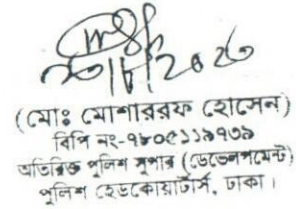 (মোঃ মোশাররফ হোসেন)
বিপি নং-৭৮০৫১১৯৭৩৯
অতিরিক্ত পুলিশ সুপার (ডেভেলপমেন্ট)
পুলিশ হেডকোয়ার্টার্স, ঢাকা।